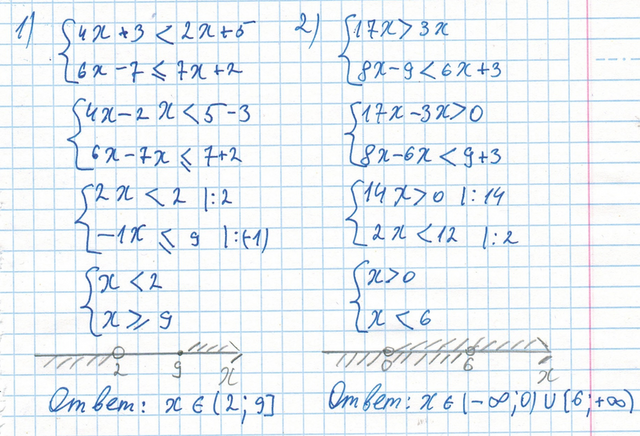 1) { 4x + 3 < 2x + 5
6x - 7 ⩽ 7x + 2
{ 4x - 2x < 5 - 3
6x - 7x ⩽ 7 + 2
{ 2x < 2 |:2
-1x ⩽ 9 |:(-1)
{ x < 2
x ⩾ 9
2 9 x
Ответ: x ∈ (2; 9]
2) { 17x > 3x
8x - 9 < 6x + 3
{ 17x - 3x > 0
8x - 6x < 9 + 3
{ 14x > 0 |:14
2x < 12 |:2
{ x > 0
x < 6
0 6 x
Ответ: x ∈ (-∞; 0) ∪ (6; +∞)